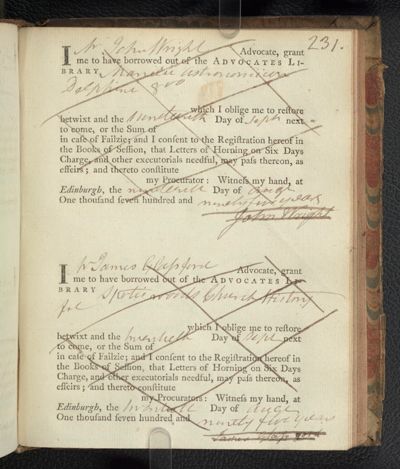 231.
I Mr John Wright Advocate, grant
me to have borrowed out of the ADVOCATES LI-
BRARY Manilii astronomicon
Delphini 8vo
which I oblige me to restore
betwixt and the nineteenth Day of Septr next
to come, or the Sum of
in case of Failzie; and I consent to the Registration hereof in
the Books of Session, that Letters of Horning on Six Days
Charge, and other executorials needful, may pass thereon, as
effeirs; and thereto constitute
my Procurator: Witness my hand, at
Edinburgh, the nineteenth Day of Augt
One thousand seven hundred and ninety five years
John Wright
I Mr James Advocate, grant
me to have borrowed out of the ADVOCATES LI-
BRARY Spotiswoods Church History
fol
which I oblige me to restore
betwixt and the twentieth Day of Sept next
to come, or the Sum of
in case of Failzie; and I consent to the Registration hereof in
the Books of Session, that Letters of Horning on Six Days
Charge, and other executorials needful, may pass thereon, as
effeirs; and thereto constitute
my Procurators: Witness my hand, at
Edinburgh, the twentieth Day of Augt
One thousand seven hundred and ninety five years
James